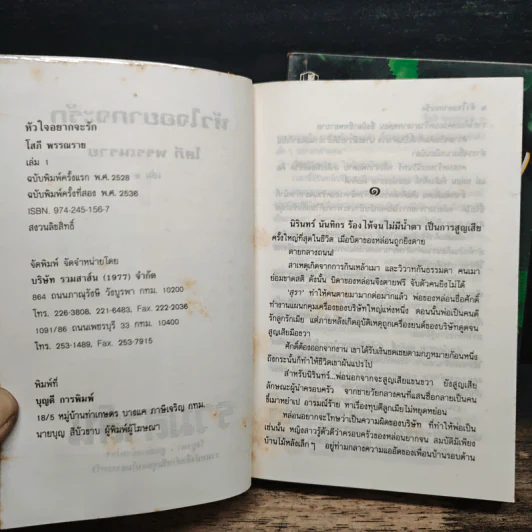 หัวใจอยากจะรัก
โสภี พรรณราย
เล่ม 1
ฉบับพิมพ์ครั้งแรก พ.ศ. 2528
ฉบับพิมพ์ครั้งที่สอง พ.ศ. 2536
ISBN. 974-245-156-7
สงวนลิขสิทธิ์
จัดพิมพ์ จัดจำหน่ายโดย
บริษัท รวมสาส์น (1977) จำกัด
864 ถนนภาณุรังษี วังบูรพา กทม. 10200
โทร. 226-3808. 221-6483, Fax. 222-2036
1091/86 ถนนเพชรบุรี 33 กทม. 10400
โทร. 253-1489, Fax. 253-7915
พิมพ์ที่
บุญดี การพิมพ์
18/5 หมู่บ้านท่าเกษตร บางแค ภาษีเจริญ กทม.
นายบุญ สีบัวขาบ ผู้พิมพ์ผู้โฆษณา
๑
นิรินทร์ นันทิกร ร้องไห้จนไม่มีน้ำตา เป็นการสูญเสีย
ครั้งใหญ่ที่สุดในชีวิต เมื่อบิดาของหล่อนถูกยิงตาย
ตายกลางถนน!
สาเหตุเกิดจากการกินเหล้าเมา และวิวาทกันธรรมดา คนเมา
ย่อมขาดสติ ดังนั้น บิดาของหล่อนจึงตายฟรี จับตัวคนยิงไม่ได้
'สุรา' ทำให้คนตายมามากต่อมากแล้ว พ่อของหล่อนชื่อศักดิ์
ทำงานแผนกคุมเครื่องของบริษัทใหญ่แห่งหนึ่ง ตอนนั้นพ่อเป็นคนดี
รักลูกรักเมีย แต่ภายหลังเกิดอุบัติเหตุถูกเครื่องยนต์ของบริษัทดูดจน
สูญเสียมือขวา
ศักดิ์ต้องออกจากงาน เขาได้รับเงินชดเชยตามกฎหมายก้อนหนึ่ง
ถึงกระนั้นก็ทำให้ชีวิตเขาผันแปรไป
สำหรับนิรินทร์...พ่อนอกจากจะสูญเสียแขนขวา ยังสูญเสีย
ลักษณะผู้นำครอบครัว จากชายวัยกลางคนที่แสนซื่อกลายเป็นคน
ขี้เมาหยำเป อารมณ์ร้าย หาเรื่องทุบตีลูกเมียไม่หยุดหย่อน
หล่อนอยากจะโทษว่าเป็นความผิดของบริษัท ที่ทำให้พ่อเป็น
เช่นนั้น หญิงสาวรู้ตัวดีว่าครอบครัวของหล่อนยากจน สมบัติมีเพียง
บ้านไม้หลังเล็กๆ อยู่ท่ามกลางความแออัดของเพื่อนบ้านรอบด้าน